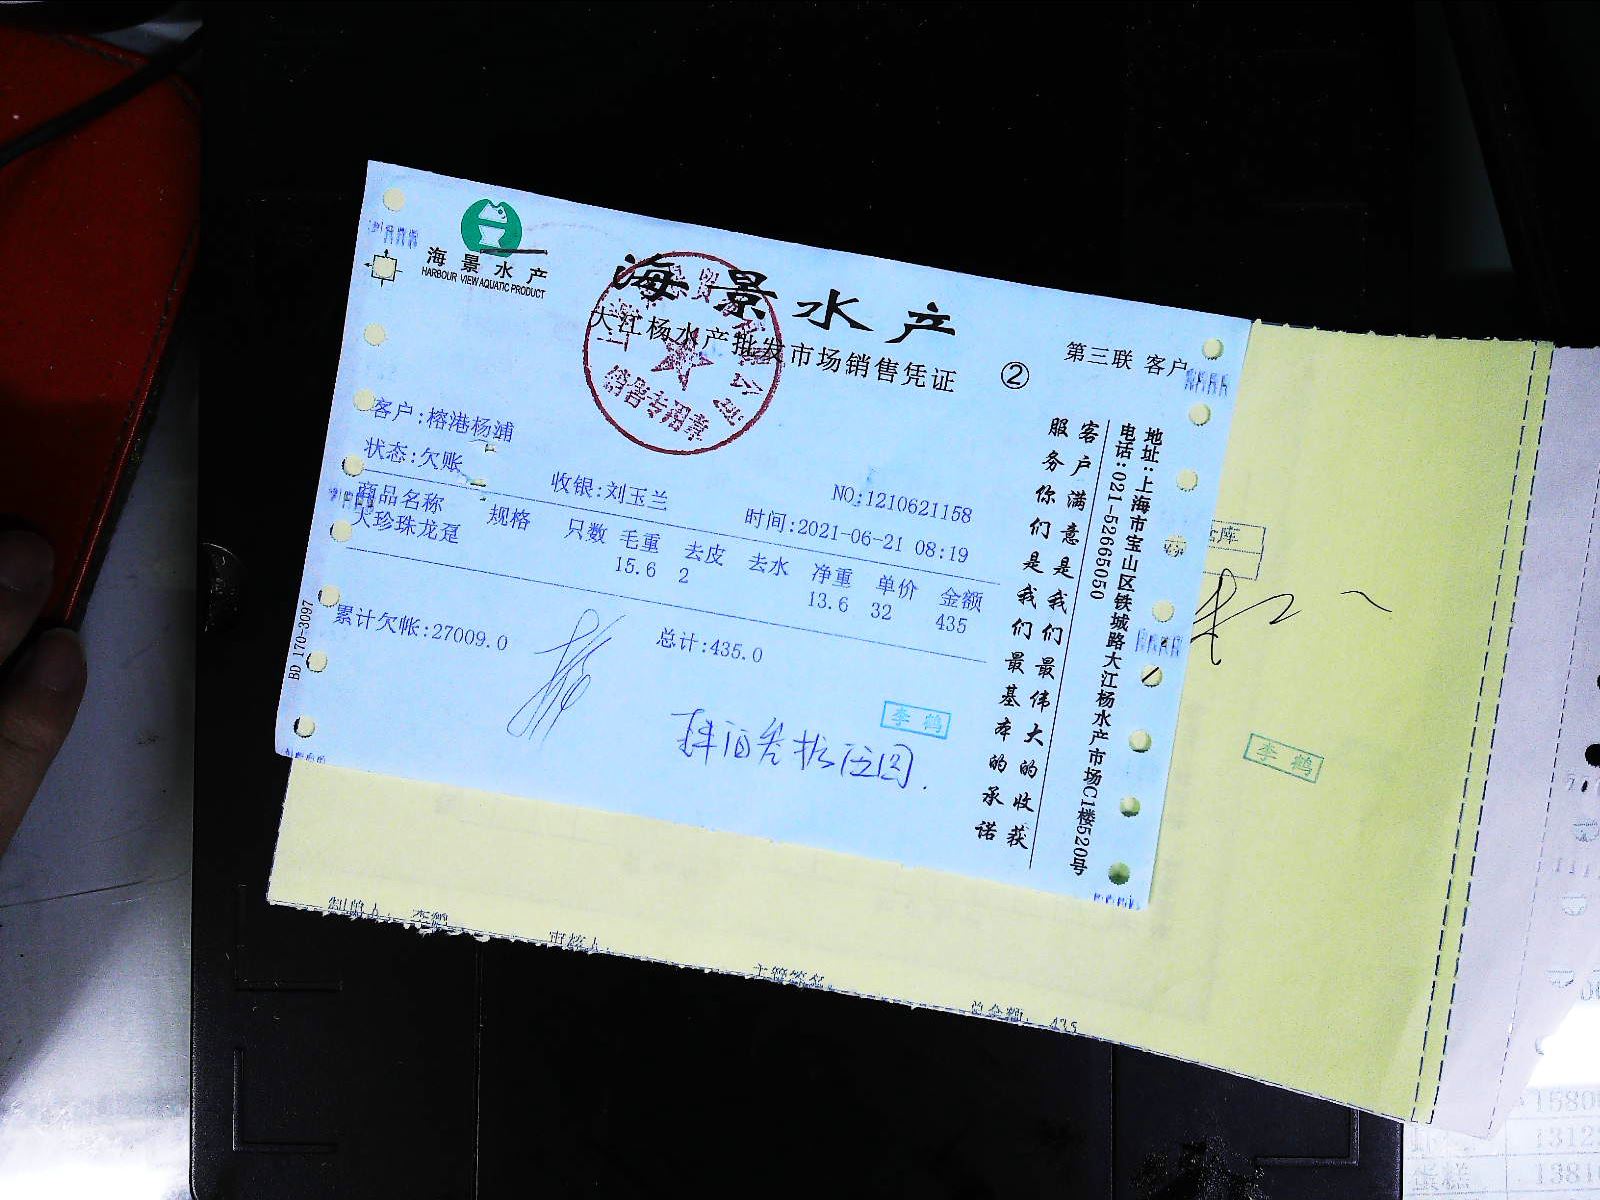 海景水产
HARBOUR VIEW AQUATIC PRODUCT
海景水产
大江杨水产批发市场销售凭证
②
第三联 客户
销售专用章
客户:榕港杨浦
状态:欠账
收银:刘玉兰
NO:1210621158
时间:2021-06-21 08:19
商品名称 规格 只数 毛重 去皮 去水 净重 单价 金额
大珍珠龙趸 15.6 2 13.6 32 435
累计欠帐:27009.0
总计:435.0
李鹤
BD 170-3097
客户满意是我们最伟大的收获
服务你们是我们最基本的承诺
地址:上海市宝山区铁城路大江杨水产市场C1楼520号
电话:021-52665050
李鹤
主管签名
总金额: 435
15800
1312
蛋糕
1381